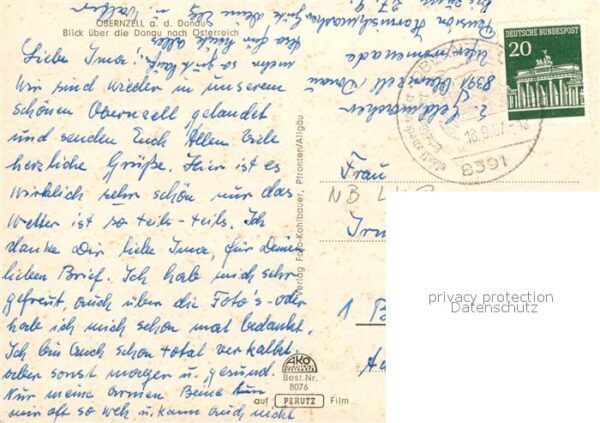 OBERNZELL a. d. Donau
Blick über die Donau nach Österreich
Liebe Irma!
Wir sind wieder in unserem
schönen Obernzell gelandet
und senden Euch Allen viele
herzliche Grüße. Hier ist es
wirklich sehr schön nur das
Wetter ist so teils-teils. Ich
danke Dir liebe Irma, für Deinen
lieben Brief. Ich habe mich sehr
gefreut, auch über die Foto's-oder
habe ich mich schon mal bedankt.
Ich bin auch schon total verkalkt.
aber sonst mager u. gesund.
Nur meine armen Beine tun
mir oft so weh u. kann auch nicht
mehr so gut
Pension
Uferpromenade
8391 Obernzell/Donau
Verlag Foto-Kohlbauer, Pfronten/Allgäu
AKO
Best.Nr.
8076
auf PERUTZ Film
DEUTSCHE BUNDESPOST
20
8391
Frau
NB
privacy protection
Datenschutz